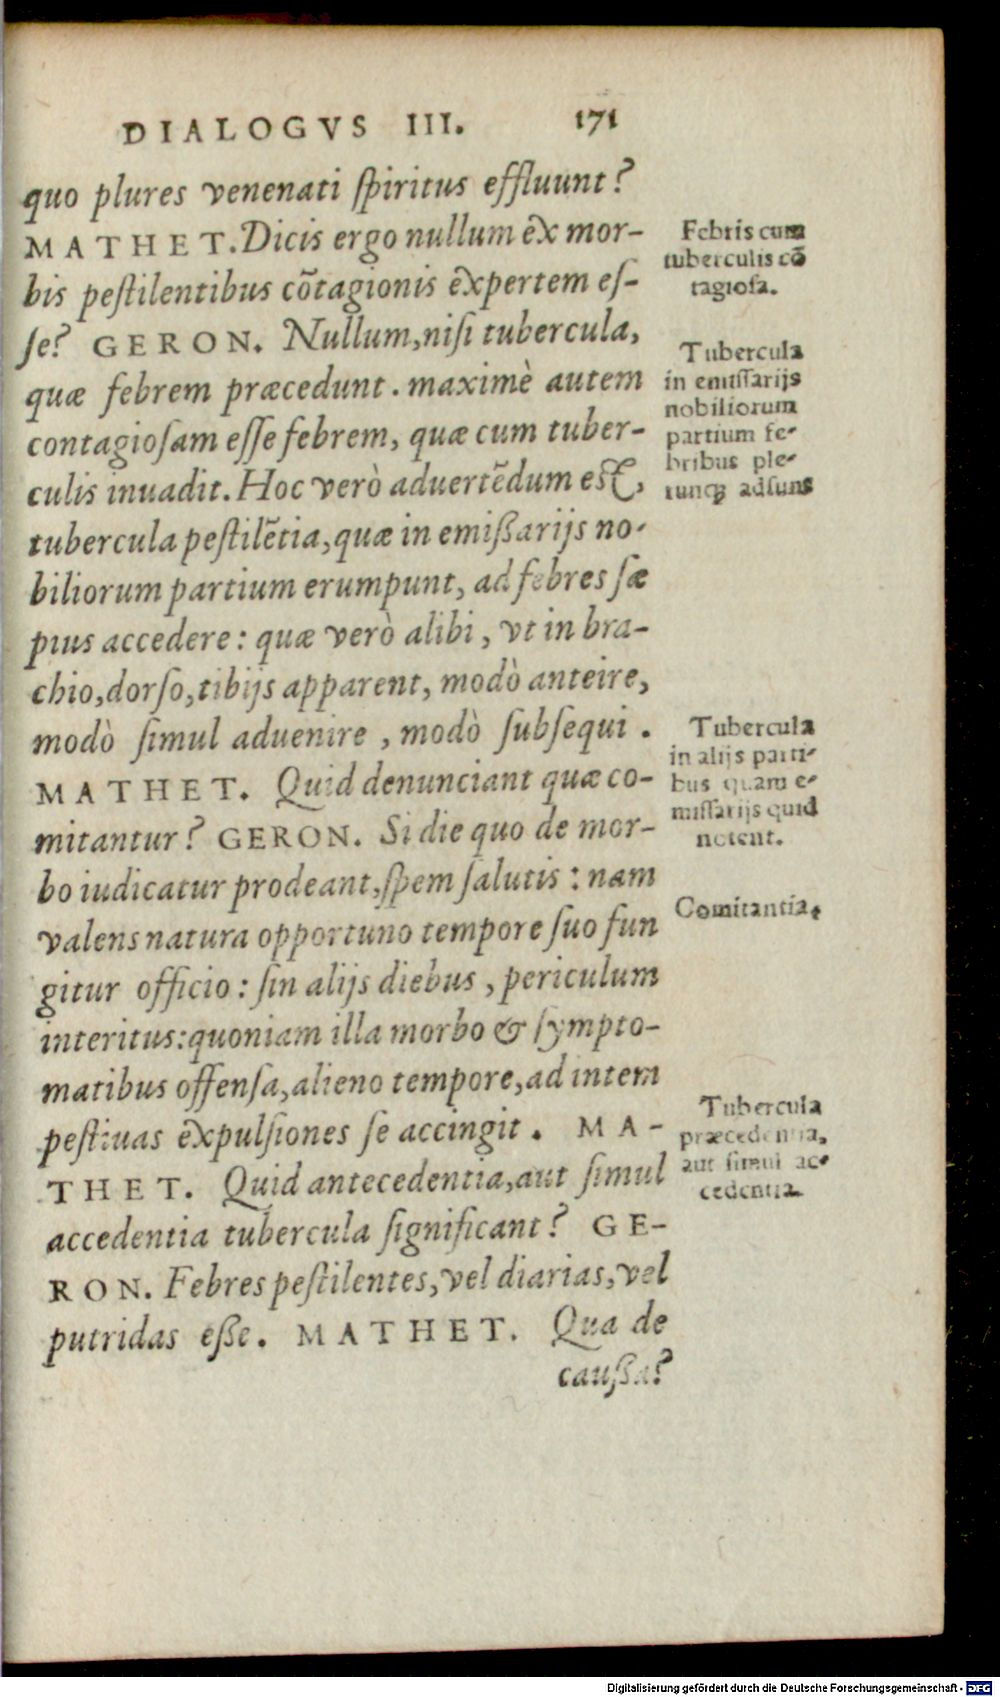 DIALOGVS III. 171
quo plures venenati ſpiritus effluunt?
MATHET. Dicis ergo nullum ex mor-
bis peſtilentibus cõtagionis expertem eſ-
ſe? GERON. Nullum, niſi tubercula,
quæ febrem præcedunt. maximè autem
contagioſam eſſe febrem, quæ cum tuber-
culis inuadit. Hoc verò aduertẽdum eſt,
tubercula peſtilẽtia, quæ in emißarijs no-
biliorum partium erumpunt, ad febres ſæ
pius accedere: quæ verò alibi, vt in bra-
chio, dorſo, tibijs apparent, modò anteire,
modò ſimul aduenire, modò ſubſequi.
MATHET. Quid denunciant quæ co-
mitantur? GERON. Si die quo de mor-
bo iudicatur prodeant, ſpem ſalutis: nam
valens natura opportuno tempore ſuo fun
gitur officio: ſin alijs diebus, periculum
interitus: quoniam illa morbo & ſympto-
matibus offenſa, alieno tempore, ad intem
peſtiuas expulſiones ſe accingit. MA-
THET. Quid antecedentia, aut ſimul
accedentia tubercula ſignificant? GE-
RON. Febres peſtilentes, vel diarias, vel
putridas eße. MATHET. Qua de
caußa?
Febris cum
tuberculis cõ
tagioſa.
Tubercula
in emiſſarijs
nobiliorum
partium fe-
bribus ple-
runq; adſunt
Tubercula
in alijs parti-
bus quam e-
miſſarijs quid
notent.
Comitantia.
Tubercula
præcedentia,
aut ſimul ac-
cedentia.
Digitalisierung gefördert durch die Deutsche Forschungsgemeinschaft - DFG